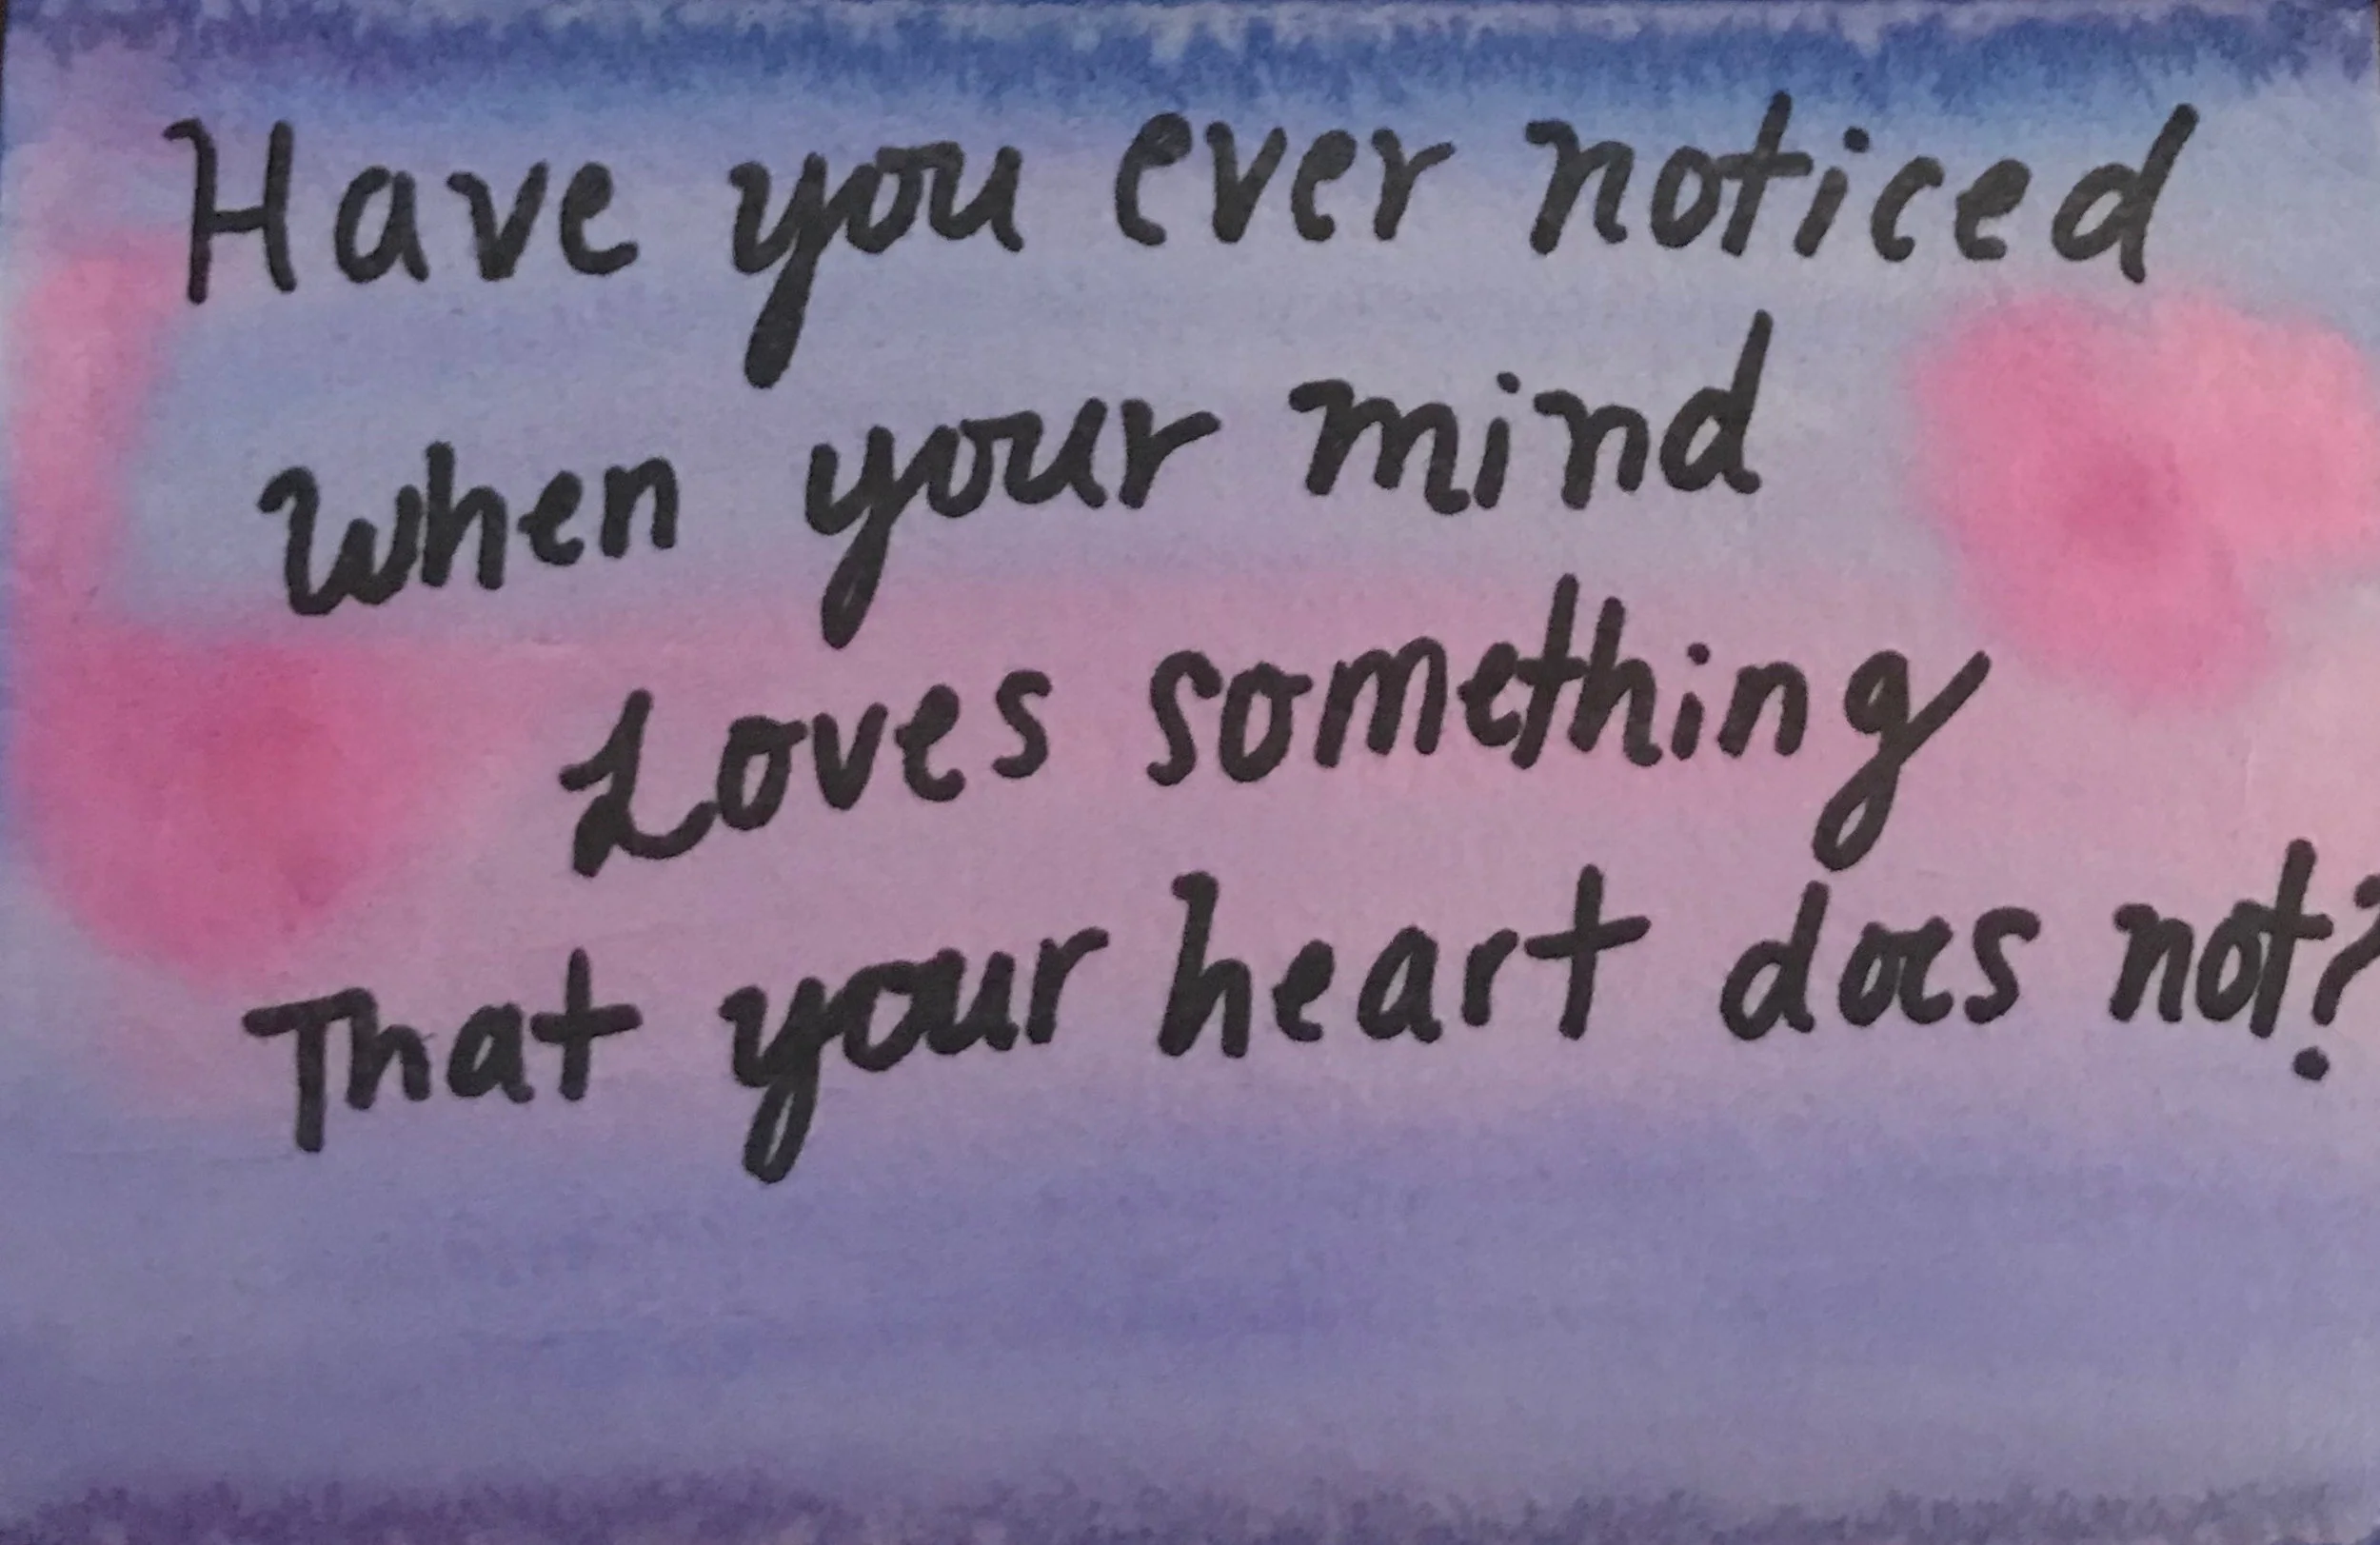 Have you ever noticed
when your mind
Loves something
That your heart does not?